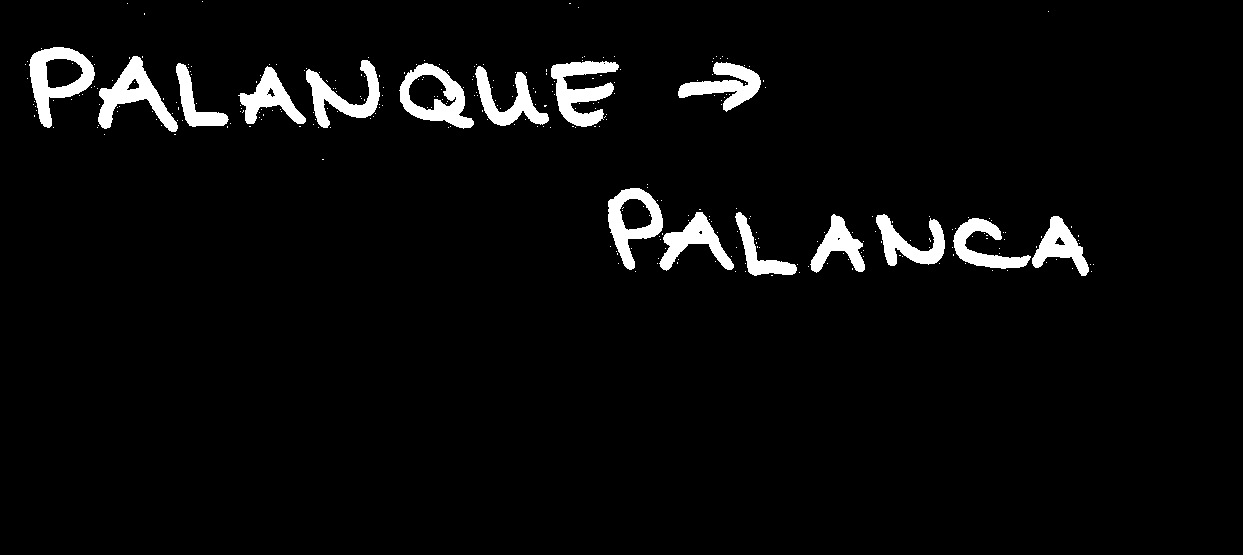 PALANQUE →
PALANCA